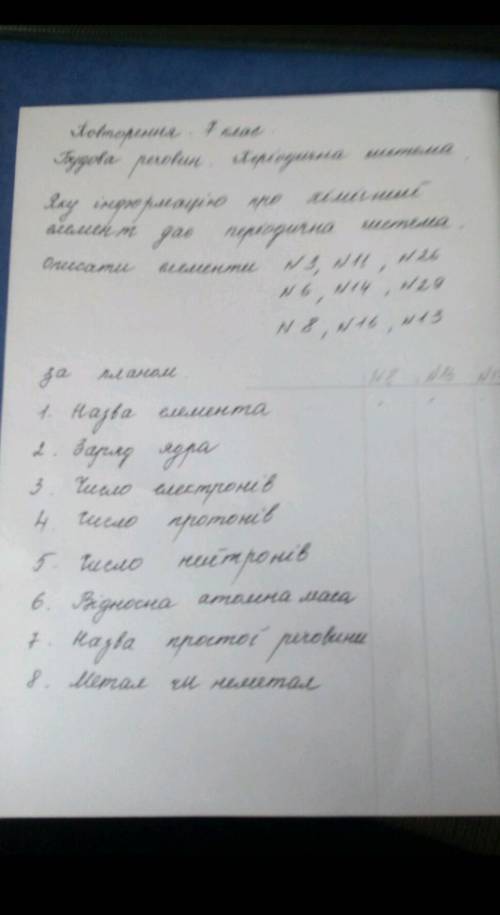 Повторення. 7 клас.
Будова речовин. Періодична система.
Яку інформацію про хімічний
елемент дає періодична система.
Описати елементи N3, N11, N26
N6, N14, N29
N8, N16, N13
за планом
1. Назва елемента
2. Заряд ядра
3. Число електронів
4. Число протонів
5. Число нейтронів
6. Відносна атомна маса
7. Назва простої речовини
8. Метал чи неметал